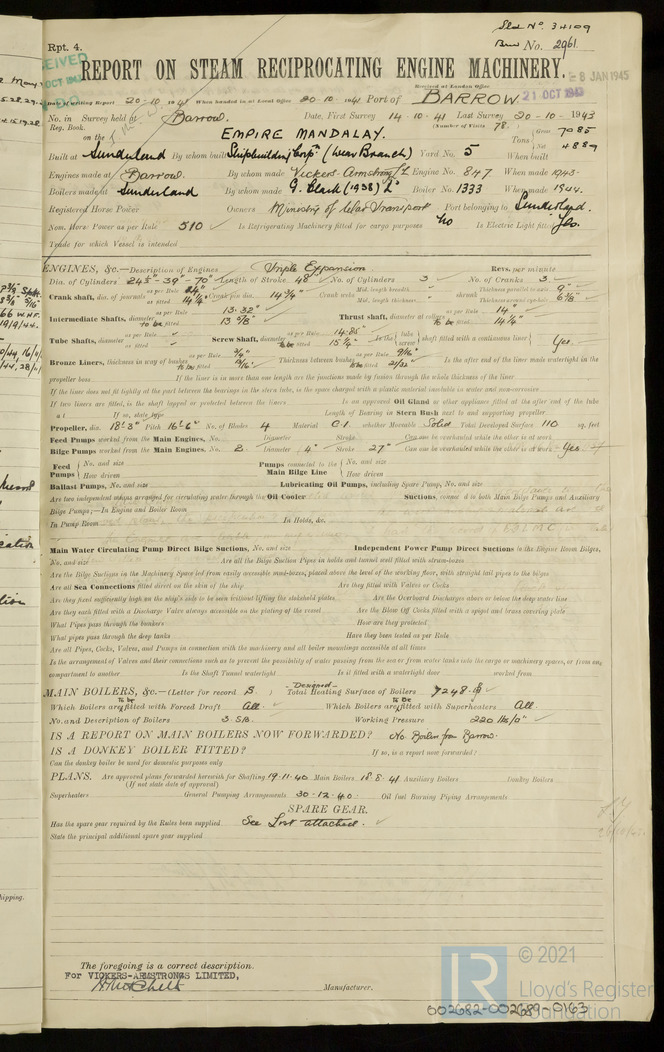 Sld No. 34109
Rpt. 4.
Bw No. 2961.
REPORT ON STEAM RECIPROCATING ENGINE MACHINERY.
8 JAN 1945
Received at London Office
21 OCT 1943
Date of writing Report 20-10-1943 When handed in at Local Office 20-10-1943 Port of BARROW
No. in Survey held at Barrow. Date, First Survey 14-10-41 Last Survey 20-10-1943
Reg. Book. (Number of Visits 78.)
on the EMPIRE MANDALAY. Tons Gross 7085 Net 4889
Built at Sunderland By whom built Shipbuilding Corpn (Wear Branch) Yard No. 5 When built
Engines made at Barrow. By whom made Vickers-Armstrong Ld Engine No. 847 When made 1943.
Boilers made at Sunderland By whom made G. Clark (1938) Ld Boiler No. 1333 When made 1944.
Registered Horse Power Owners Ministry of War Transport Port belonging to Sunderland.
Nom. Horse Power as per Rule 510 Is Refrigerating Machinery fitted for cargo purposes No Is Electric Light fitted Yes.
Trade for which Vessel is intended
ENGINES, &c.—Description of Engines Triple Expansion. Revs. per minute
Dia. of Cylinders 24½"-39"-70" Length of Stroke 48" No. of Cylinders 3 No. of Cranks 3
Crank shaft, dia. of journals as per Rule as fitted 14¼" Crank pin dia. 14¾" Crank webs Mid. length breadth Mid. length thickness shrunk Thickness parallel to axis 9" Thickness around eye-hole 6⅞"
Intermediate Shafts, diameter as per Rule 13.32" to be fitted 13⅝" Thrust shaft, diameter at collars as per Rule 14" to be fitted 14¼"
Tube Shafts, diameter as per Rule as fitted Screw Shaft, diameter as per Rule 14.85" to be fitted 15¼" Is the tube screw shaft fitted with a continuous liner Yes.
Bronze Liners, thickness in way of bushes as per Rule ¾" to be fitted Thickness between bushes as per Rule 9/16" to be fitted 21/32" Is the after end of the liner made watertight in the
propeller boss If the liner is in more than one length are the junctions made by fusion through the whole thickness of the liner
If the liner does not fit tightly at the part between the bearings in the stern tube, is the space charged with a plastic material insoluble in water and non-corrosive
If two liners are fitted, is the shaft lapped or protected between the liners Is an approved Oil Gland or other appliance fitted at the after end of the tube
shaft If so, state type Length of Bearing in Stern Bush next to and supporting propeller
Propeller, dia. 18'-3" Pitch 16'-6" No. of Blades 4 Material C.I. whether Moveable Solid Total Developed Surface 110 sq. feet
Feed Pumps worked from the Main Engines, No. Diameter Stroke Can one be overhauled while the other is at work
Bilge Pumps worked from the Main Engines, No. 2 Diameter 4" Stroke 27" Can one be overhauled while the other is at work Yes.
Feed Pumps No. and size How driven Pumps connected to the Main Bilge Line No. and size How driven
Ballast Pumps, No. and size Lubricating Oil Pumps, including Spare Pump, No. and size
Are two independent means arranged for circulating water through the Oil Cooler Suctions, connected to both Main Bilge Pumps and Auxiliary
Bilge Pumps;—In Engine and Boiler Room
In Pump Room In Holds, &c.
Main Water Circulating Pump Direct Bilge Suctions, No. and size Independent Power Pump Direct Suctions to the Engine Room Bilges,
No. and size Are all the Bilge Suction Pipes in holds and tunnel well fitted with strum-boxes
Are the Bilge Suctions in the Machinery Space led from easily accessible mud-boxes, placed above the level of the working floor, with straight tail pipes to the bilges
Are all Sea Connections fitted direct on the skin of the ship Are they fitted with Valves or Cocks
Are they fixed sufficiently high on the ship's side to be seen without lifting the stokehold plates Are the Overboard Discharges above or below the deep water line
Are they each fitted with a Discharge Valve always accessible on the plating of the vessel Are the Blow Off Cocks fitted with a spigot and brass covering plate
What Pipes pass through the bunkers How are they protected
What pipes pass through the deep tanks Have they been tested as per Rule
Are all Pipes, Cocks, Valves, and Pumps in connection with the machinery and all boiler mountings accessible at all times
Is the arrangement of Valves and their connections such as to prevent the possibility of water passing from the sea or from water tanks into the cargo or machinery spaces, or from one
compartment to another Is the Shaft Tunnel watertight Is it fitted with a watertight door worked from
MAIN BOILERS, &c.—(Letter for record S.) Designed Total Heating Surface of Boilers 7248
Which Boilers are to be fitted with Forced Draft All. Which Boilers are to be fitted with Superheaters All.
No. and Description of Boilers 3 S.B. Working Pressure 220 lbs/□"
IS A REPORT ON MAIN BOILERS NOW FORWARDED? No. Boilers from Barrow.
IS A DONKEY BOILER FITTED? If so, is a report now forwarded?
Can the donkey boiler be used for domestic purposes only
PLANS. Are approved plans forwarded herewith for Shafting 19-11-40 Main Boilers 18-8-41 Auxiliary Boilers Donkey Boilers
(If not state date of approval)
Superheaters General Pumping Arrangements 30-12-40 Oil fuel Burning Piping Arrangements
SPARE GEAR.
Has the spare gear required by the Rules been supplied See List attached.
State the principal additional spare gear supplied
The foregoing is a correct description.
For VICKERS-ARMSTRONGS LIMITED,
Manufacturer.
LR © 2021
Lloyd's Register
Foundation
002682-002689-0163